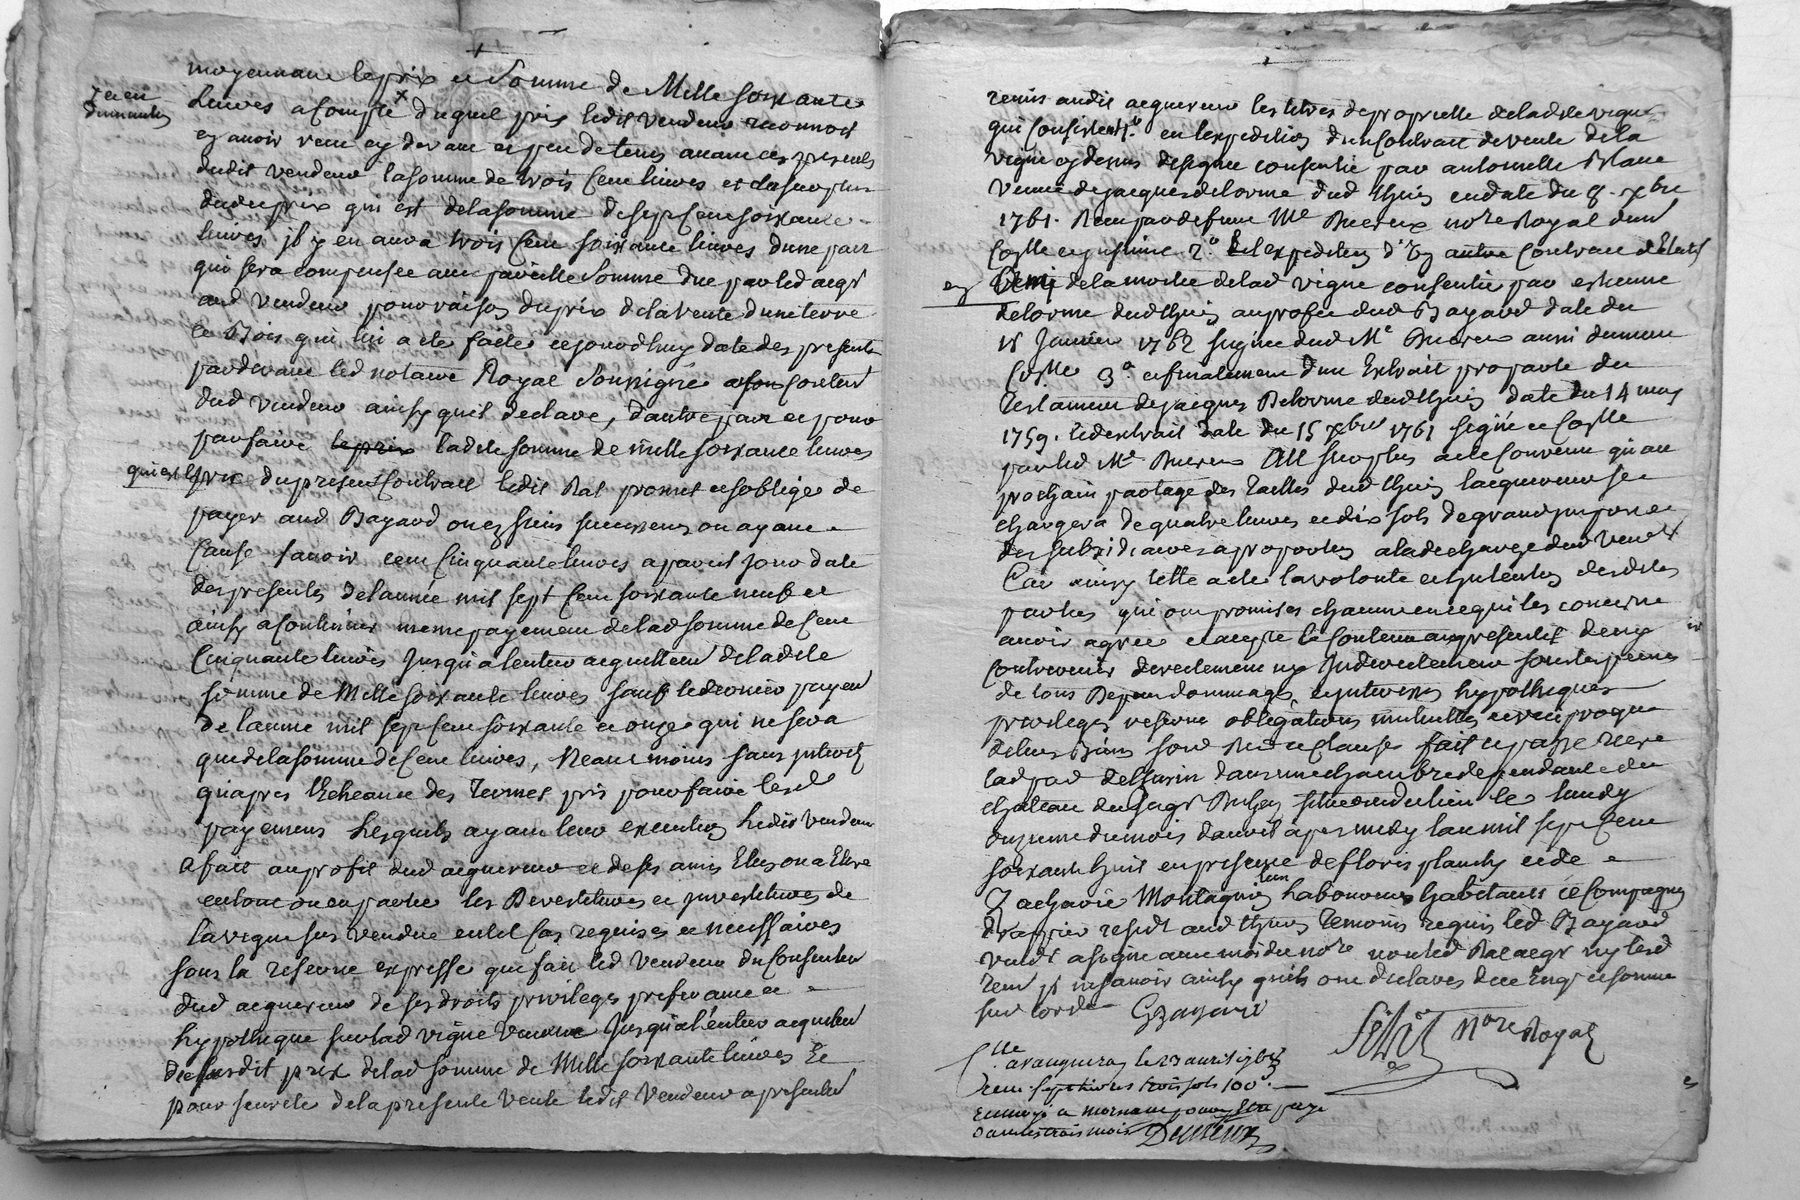 moyennant le prix et somme de Mille soixante
livres a compte x duquel prix ledit vendeur reconnoit
et en
diminution
avoir receu cy devant et peu de tems avant ces presentes
dudit vendeur la somme de trois cent livres et du surplus
dudit prix qui est de la somme de sept cent soixante
livres il y en aura trois cent soixante livres d'une part
qui sera compensée avec pareille somme due par led acqr
aud vendeur pour raison du prix de la vente d'une terre
et Bois qui lui a été faite ce jourdhuy date des presentes
pardevant led notaire Royal soussigné
dud vendeur ainsy quil declare, d'autre part et pour
parfaire le prix ladite somme de mille soixante livres
qui est le prix du present Contract ledit Rat promet et s'oblige de
payer aud Bayard ou es siens successeurs ou ayant
cause savoir cent Cinquante livres a pareil jour date
des presentes de lannée mil sept cent soixante neuf et
ainsy a continuer meme payement de lad somme de Cent
Cinquante livres jusqu'a l'entier acquittem de ladite
somme de Mille soixante livres sauf le dernier payem
de lannée mil sept cent soixante et onze qui ne sera
que de la somme de Cent livres, Neanmoins sans interets
qu'apres l'Echeance des Termes pris pour faire lesd
payemens lesquels ayant leur execution ledit vendeur
a fait au profit dud acquereur et de ses amis Elus ou a Elire
en tout ou en partie les Devestitures et investitures de
la vigne sus vendue en tel cas requises et necessaires
sous la reserve expresse que fait led vendeur du Consentem
dud acquereur de ses droits privileges preferance et
hypotheque sur lad vigne vendue jusqu'a l'entier acquittem
du susdit prix de lad somme de Mille soixante livres Et
pour seureté de la presente vente ledit vendeur a presentem
remis audit acquereur les titres de proprieté de ladite vigne
qui consistent 1.° en l'expedition d'un Contract de vente de la
vigne cy dessus designée consentie par antoinette Blanc
veuve de jacques delorme dud thurins en date du 8. xbre
1761. Receu par defunt Me Duereux nore Royal dud
Coste et justime 2.° l'expedition d'un autre Contract
en
de la moitié de lad vigne consentie par estienne
delorme dud thurins au profit dud Bayard date du
15 Janvier 1762 signée dud Me Duereux aussi demeure
Coste 3.° et finalement d'un Extrait pro parte du
Testament de jacques Delorme dud thurins date du 14 may
1759. led extrait date du 15 xbre 1761 signé et Coste
par led Me Duereux Au surplus a été Convenu qu'au
prochain partage des Tailles dud thurins l'acquereur se
chargera de quatre livres et dix sols de grand impost et
des subsidiaires a proportion a la decharge dud vendr
Car ainsy telle a été la volonté et intention desdites
parties qui ont promis chacune en ce qui les concerne
avoir agréé et accepté le Contenu aux presentes de n'y
Contrevenir directement ny Indirectement sous les peines
de tous Depens dommages et interests hypotheques
privileges reserve obligations mutuelles et reciproque
de leurs Biens sous Ren et Clauses fait et passé Riere
lad par de thurin dans une chambre dependante du
chateau du seigr dud lieu le lundy
onzieme du mois d'avril apres midy lan mil sept Cent
soixante huit en presence de floris planchy et de
Zacharie Montagnier laboureurs habitants et Compagnon
drappier residt aud thurins Temoins requis led Bayard
vendr a signé avec moi dit nore non led Rat acqr ny lesd
tem pr ne savoir ainsy quils ont declarés de ce Enqs et sommé
sur lorde Gbayard
Selvet Nore Royal
Clle a vaugneray le 23 avril 1768
Receu sept livres trois sols
renvoyé a mornant pour
dans les trois mois Dutreux